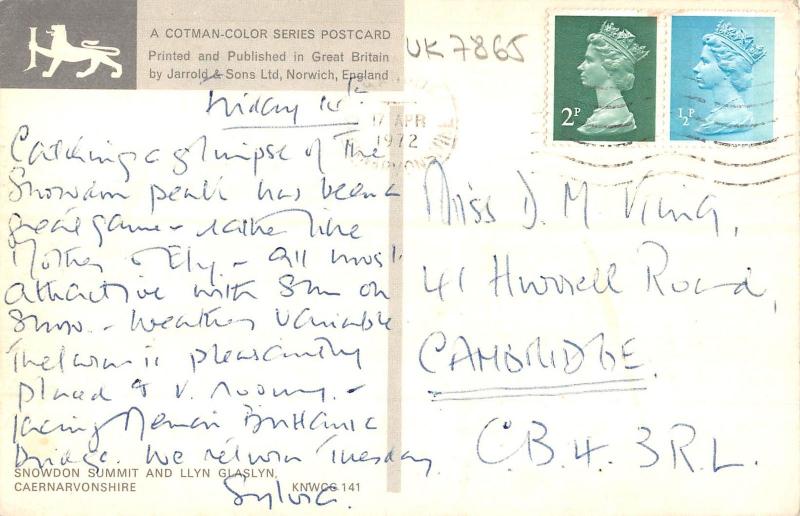 A COTMAN-COLOR SERIES POSTCARD
Printed and Published in Great Britain
by Jarrold & Sons Ltd, Norwich, England
UK 7865
2P
½P
17 APR
1972
Friday 14th
Catching a glimpse of the
Snowdon peak has been a
great game - rather like
Mother & Ely. - all most
attractive with Sun on
Snow. - Weather variable
The is pleasantly
placed & v. roomy. -
facing Menai Britannia
Bridge. We return Tuesday
Sylvia.
Miss D. M. King,
41 Hurrell Road,
CAMBRIDGE.
C.B.4. 3RL.
SNOWDON SUMMIT AND LLYN GLASLYN,
CAERNARVONSHIRE
KNWCG 141